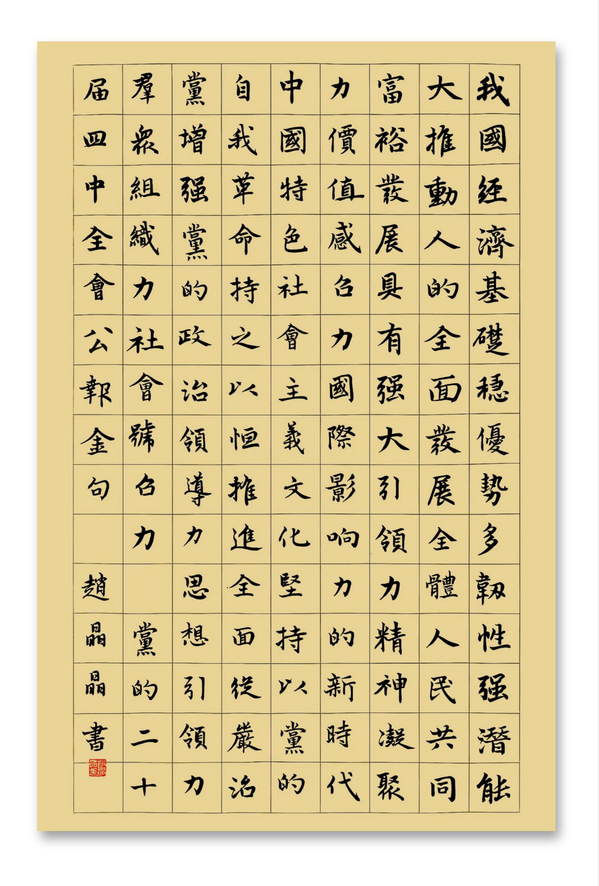 我國經濟基礎穩優勢多韌性强潛能
大推動人的全面發展全體人民共同
富裕發展具有强大引領力精神凝聚
力價值感召力國際影响力的新時代
中國特色社會主義文化堅持以黨的
自我革命持之以恒推進全面從嚴治
黨增强黨的政治領導力思想引領力
羣衆組織力社會號召力 黨的二十
届四中全會公報金句 趙晶晶書